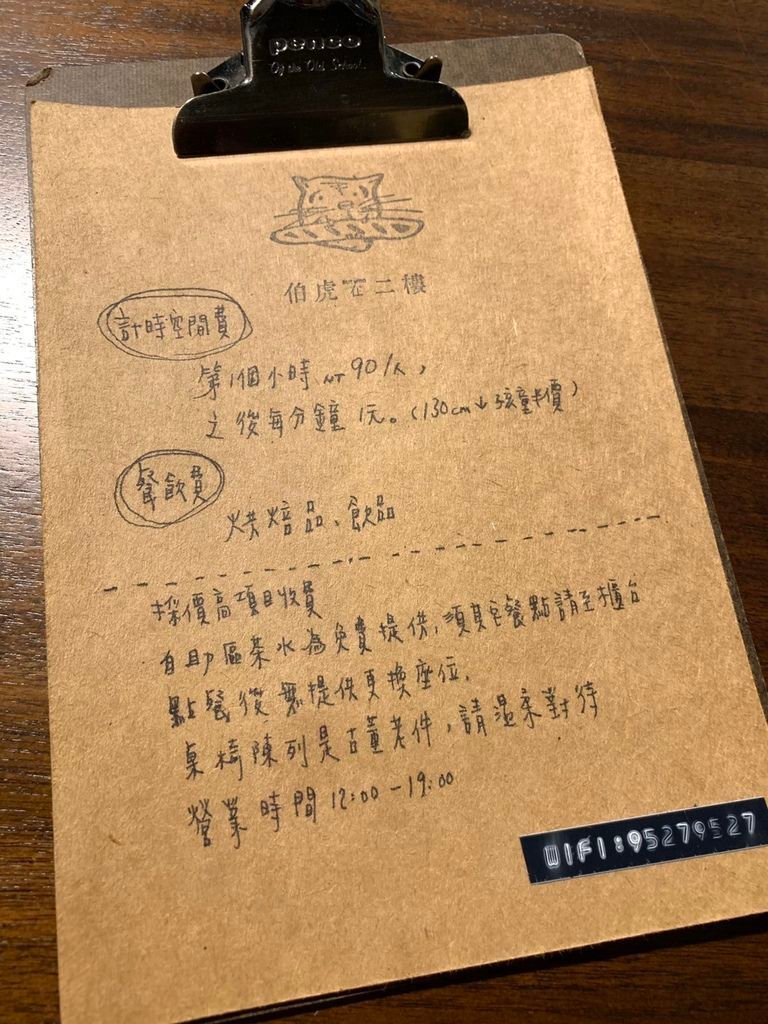 penco
Of the Old School.
伯虎在二樓
計時空間費
第1個小時 NT 90/人，
之後每分鐘 1元。(130cm↓孩童半價)
餐飲費
烘焙品、飲品
採價高項目收費
自助區茶水為免費提供，須其它餐點請至櫃台
點餐後無提供更換座位.
桌椅陳列是古董老件，請溫柔對待
營業時間 12:00-19:00
WIFI:95279527